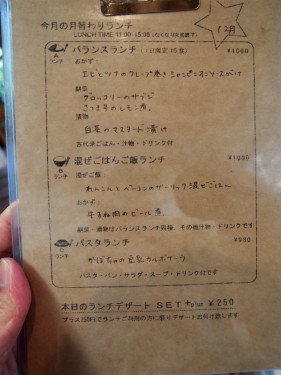 今月の月替わりランチ
12月
LUNCH TIME 11:00-15:00 (なくなり次第終了)
A ランチ
バランスランチ (1日限定15食) ¥1000
おかず
エビとツナのクレープ巻き シャンピニオンソースがけ
副菜
ブロッコリーのサラダ
さつま芋のレモン煮
漬物
白菜のマスタード漬け
古代米ごはん・汁物・ドリンク付
B ランチ
混ぜごはんご飯ランチ ¥1000
混ぜご飯
れんこんとベーコンのガーリック混ぜごはん
おかず
牛すね肉のビール煮
副菜・漬物はバランスランチ同様 その他汁物・ドリンクです
ランチ
パスタランチ ¥950
かぼちゃの豆乳カルボナーラ
パスタ・パン・サラダ・スープ・ドリンク付です
本日のランチデザート SET +plus ¥250
プラス250円でランチご利用の方に限りデザートお付け致します